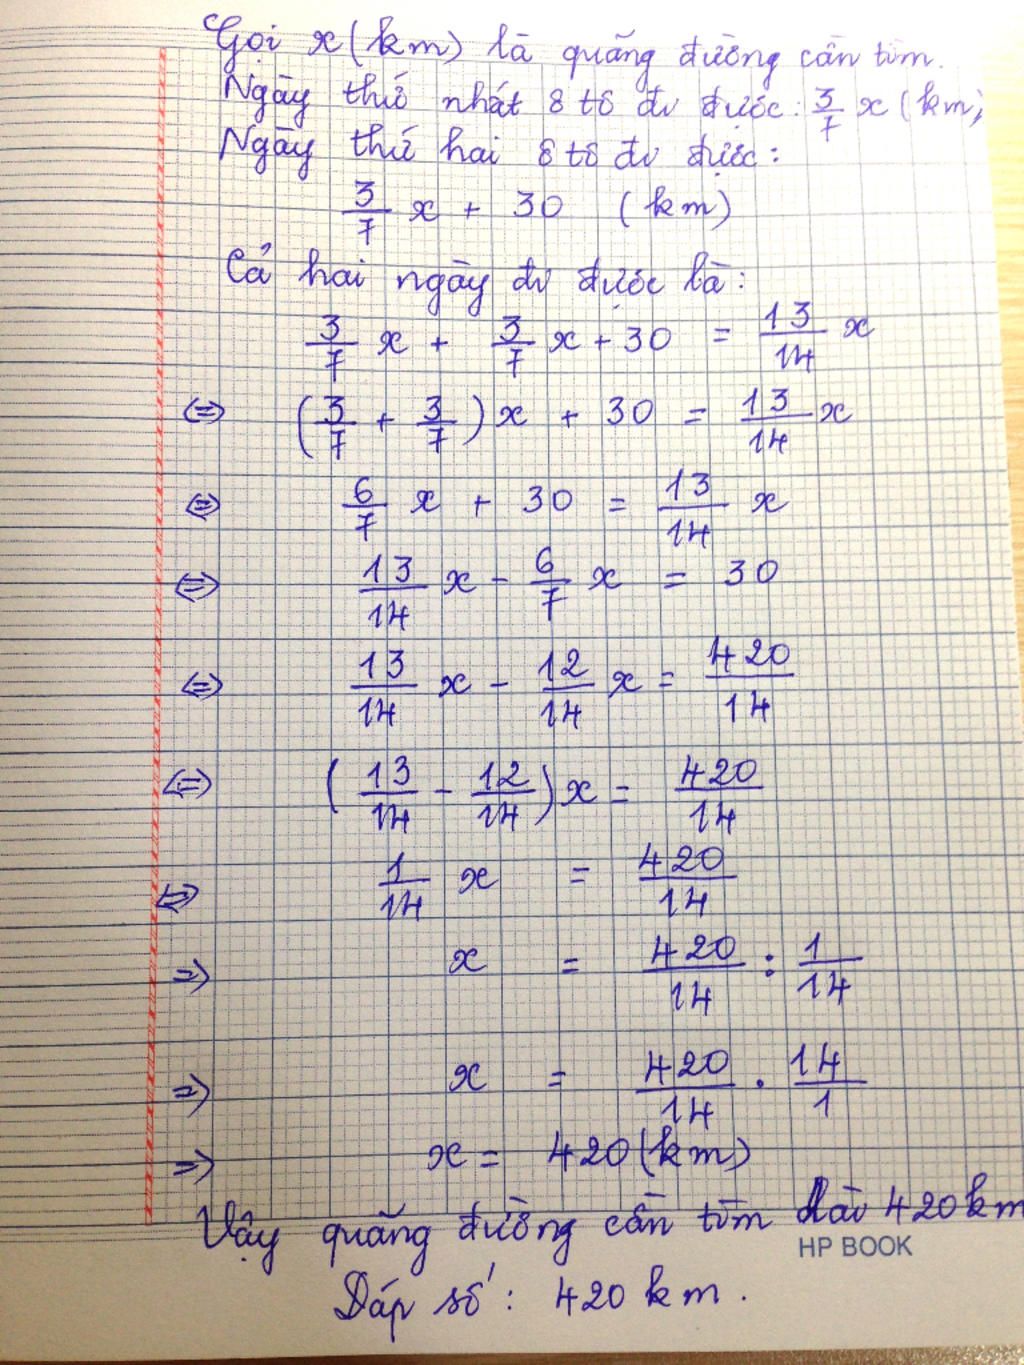 Gọi x (km) là quãng đường cần tìm.
Ngày thứ nhất ô tô đi được: 3/7 x (km)
Ngày thứ hai ô tô đi được:
3/7 x + 30 (km)
Cả hai ngày đi được là:
3/7 x + 3/7 x + 30 = 13/14 x
⇔ (3/7 + 3/7) x + 30 = 13/14 x
⇔ 6/7 x + 30 = 13/14 x
⇔ 13/14 x - 6/7 x = 30
⇔ 13/14 x - 12/14 x = 420/14
⇔ (13/14 - 12/14) x = 420/14
⇔ 1/14 x = 420/14
⇒ x = 420/14 : 1/14
⇒ x = 420/14 . 14/1
⇒ x = 420 (km)
Vậy quãng đường cần tìm dài 420 km
HP BOOK
Đáp số: 420 km.